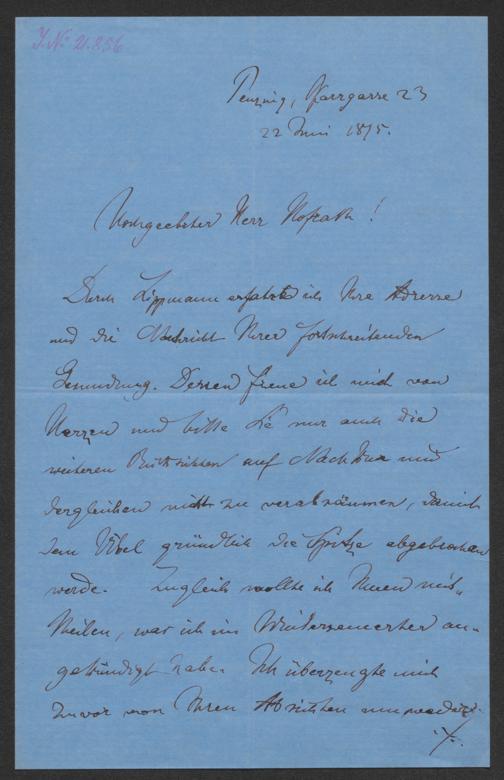 J.N. 21.856
Penzing, Pfarrgasse 23
22 Juni 1875.
Hochgeehrter Herr Hofrath!
Durch Lippmann erfahre ich Ihre Adresse
und die Nachricht Ihrer fortschreitenden
Gesundung. Dessen freue ich mich von
Herzen und bitte Sie nur auch die
weiteren Rücksichten auf Nachkur und
dergleichen nicht zu verabsäumen, damit
dem Übel gründlich die Spitze abgebrochen
werde. Zugleich wollte ich Ihnen mit-
theilen, was ich im Wintersemester an-
gekündigt habe. Ich überzeugte mich
zuvor von Ihren Absichten um